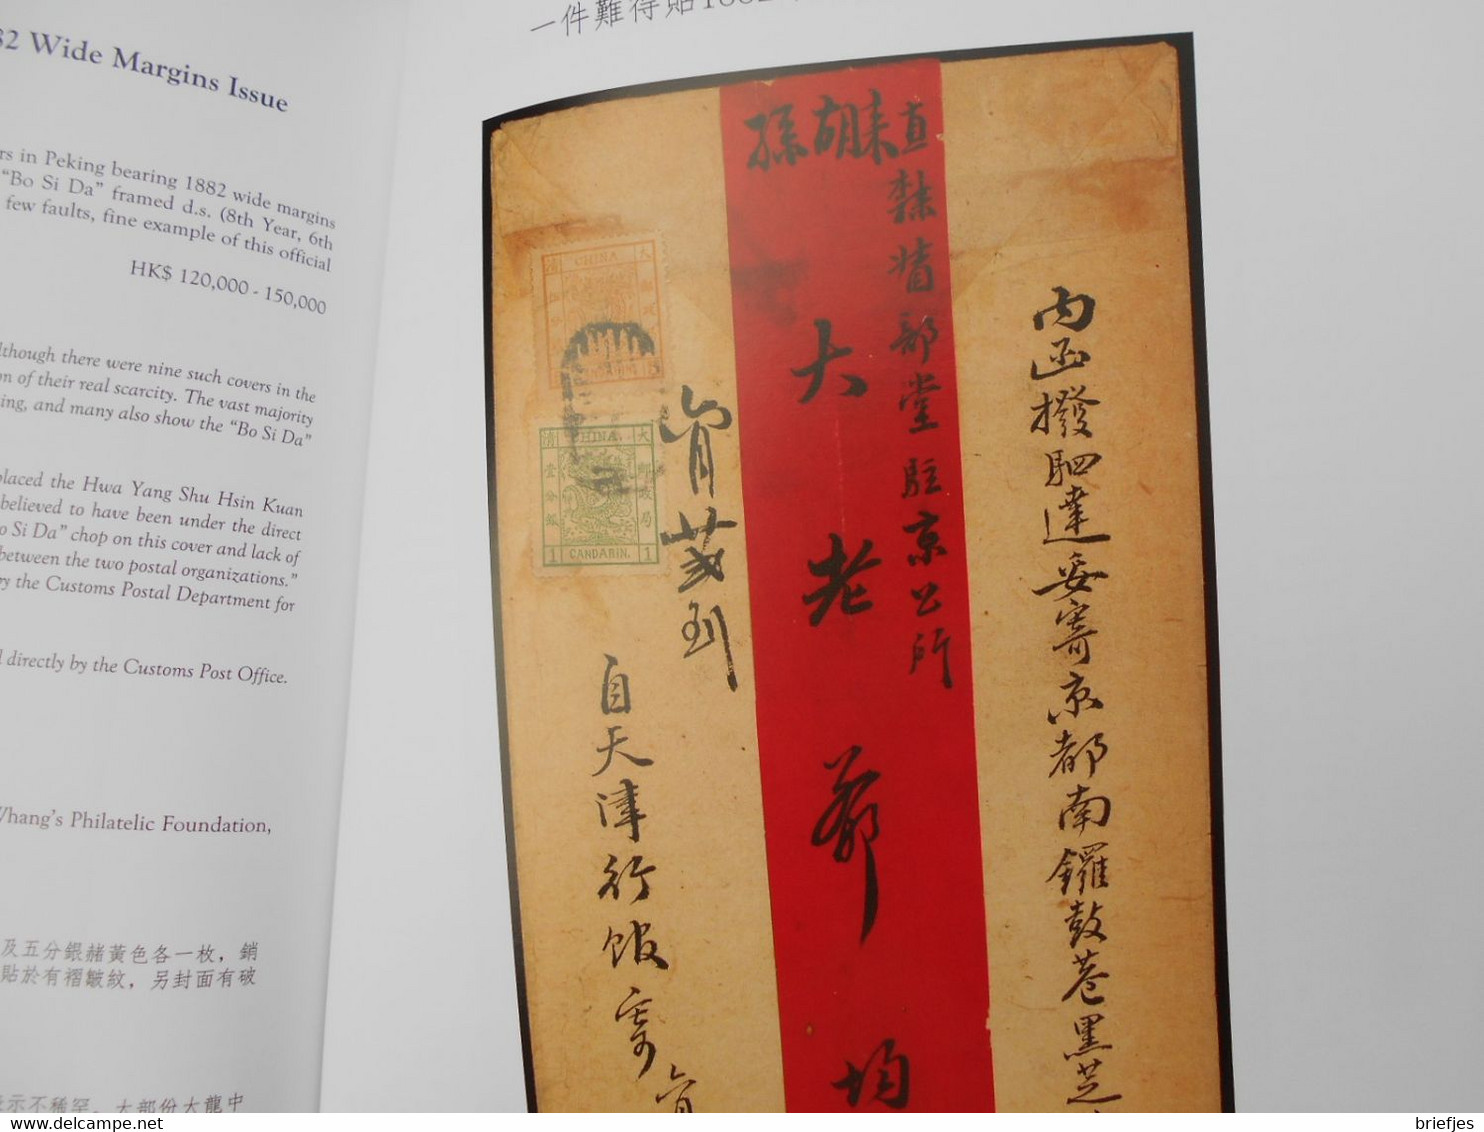 82 Wide Margins Issue
rs in Peking bearing 1882 wide margins
“Bo Si Da” framed d.s. (8th Year, 6th
few faults, fine example of this official
HK$ 120,000 - 150,000
lthough there were nine such covers in the
on of their real scarcity. The vast majority
ing, and many also show the “Bo Si Da”
placed the Hwa Yang Shu Hsin Kuan
believed to have been under the direct
o Si Da” chop on this cover and lack of
between the two postal organizations.”
by the Customs Postal Department for
l directly by the Customs Post Office.
Whang’s Philatelic Foundation,
及五分銀赭黃色各一枚，銷
貼於有褶皺紋，另封面有破
示不稀罕。大部份大龍中
一件難得貼1882
內函撥駟達妥寄京都南鑼鼓巷黑芝
部堂駐京公所
孫胡
大老爺均
CHINA
大
清
CHINA
大
清
郵政局
壹分銀
1 CANDARIN. 1
自天津行館寄
briefjes